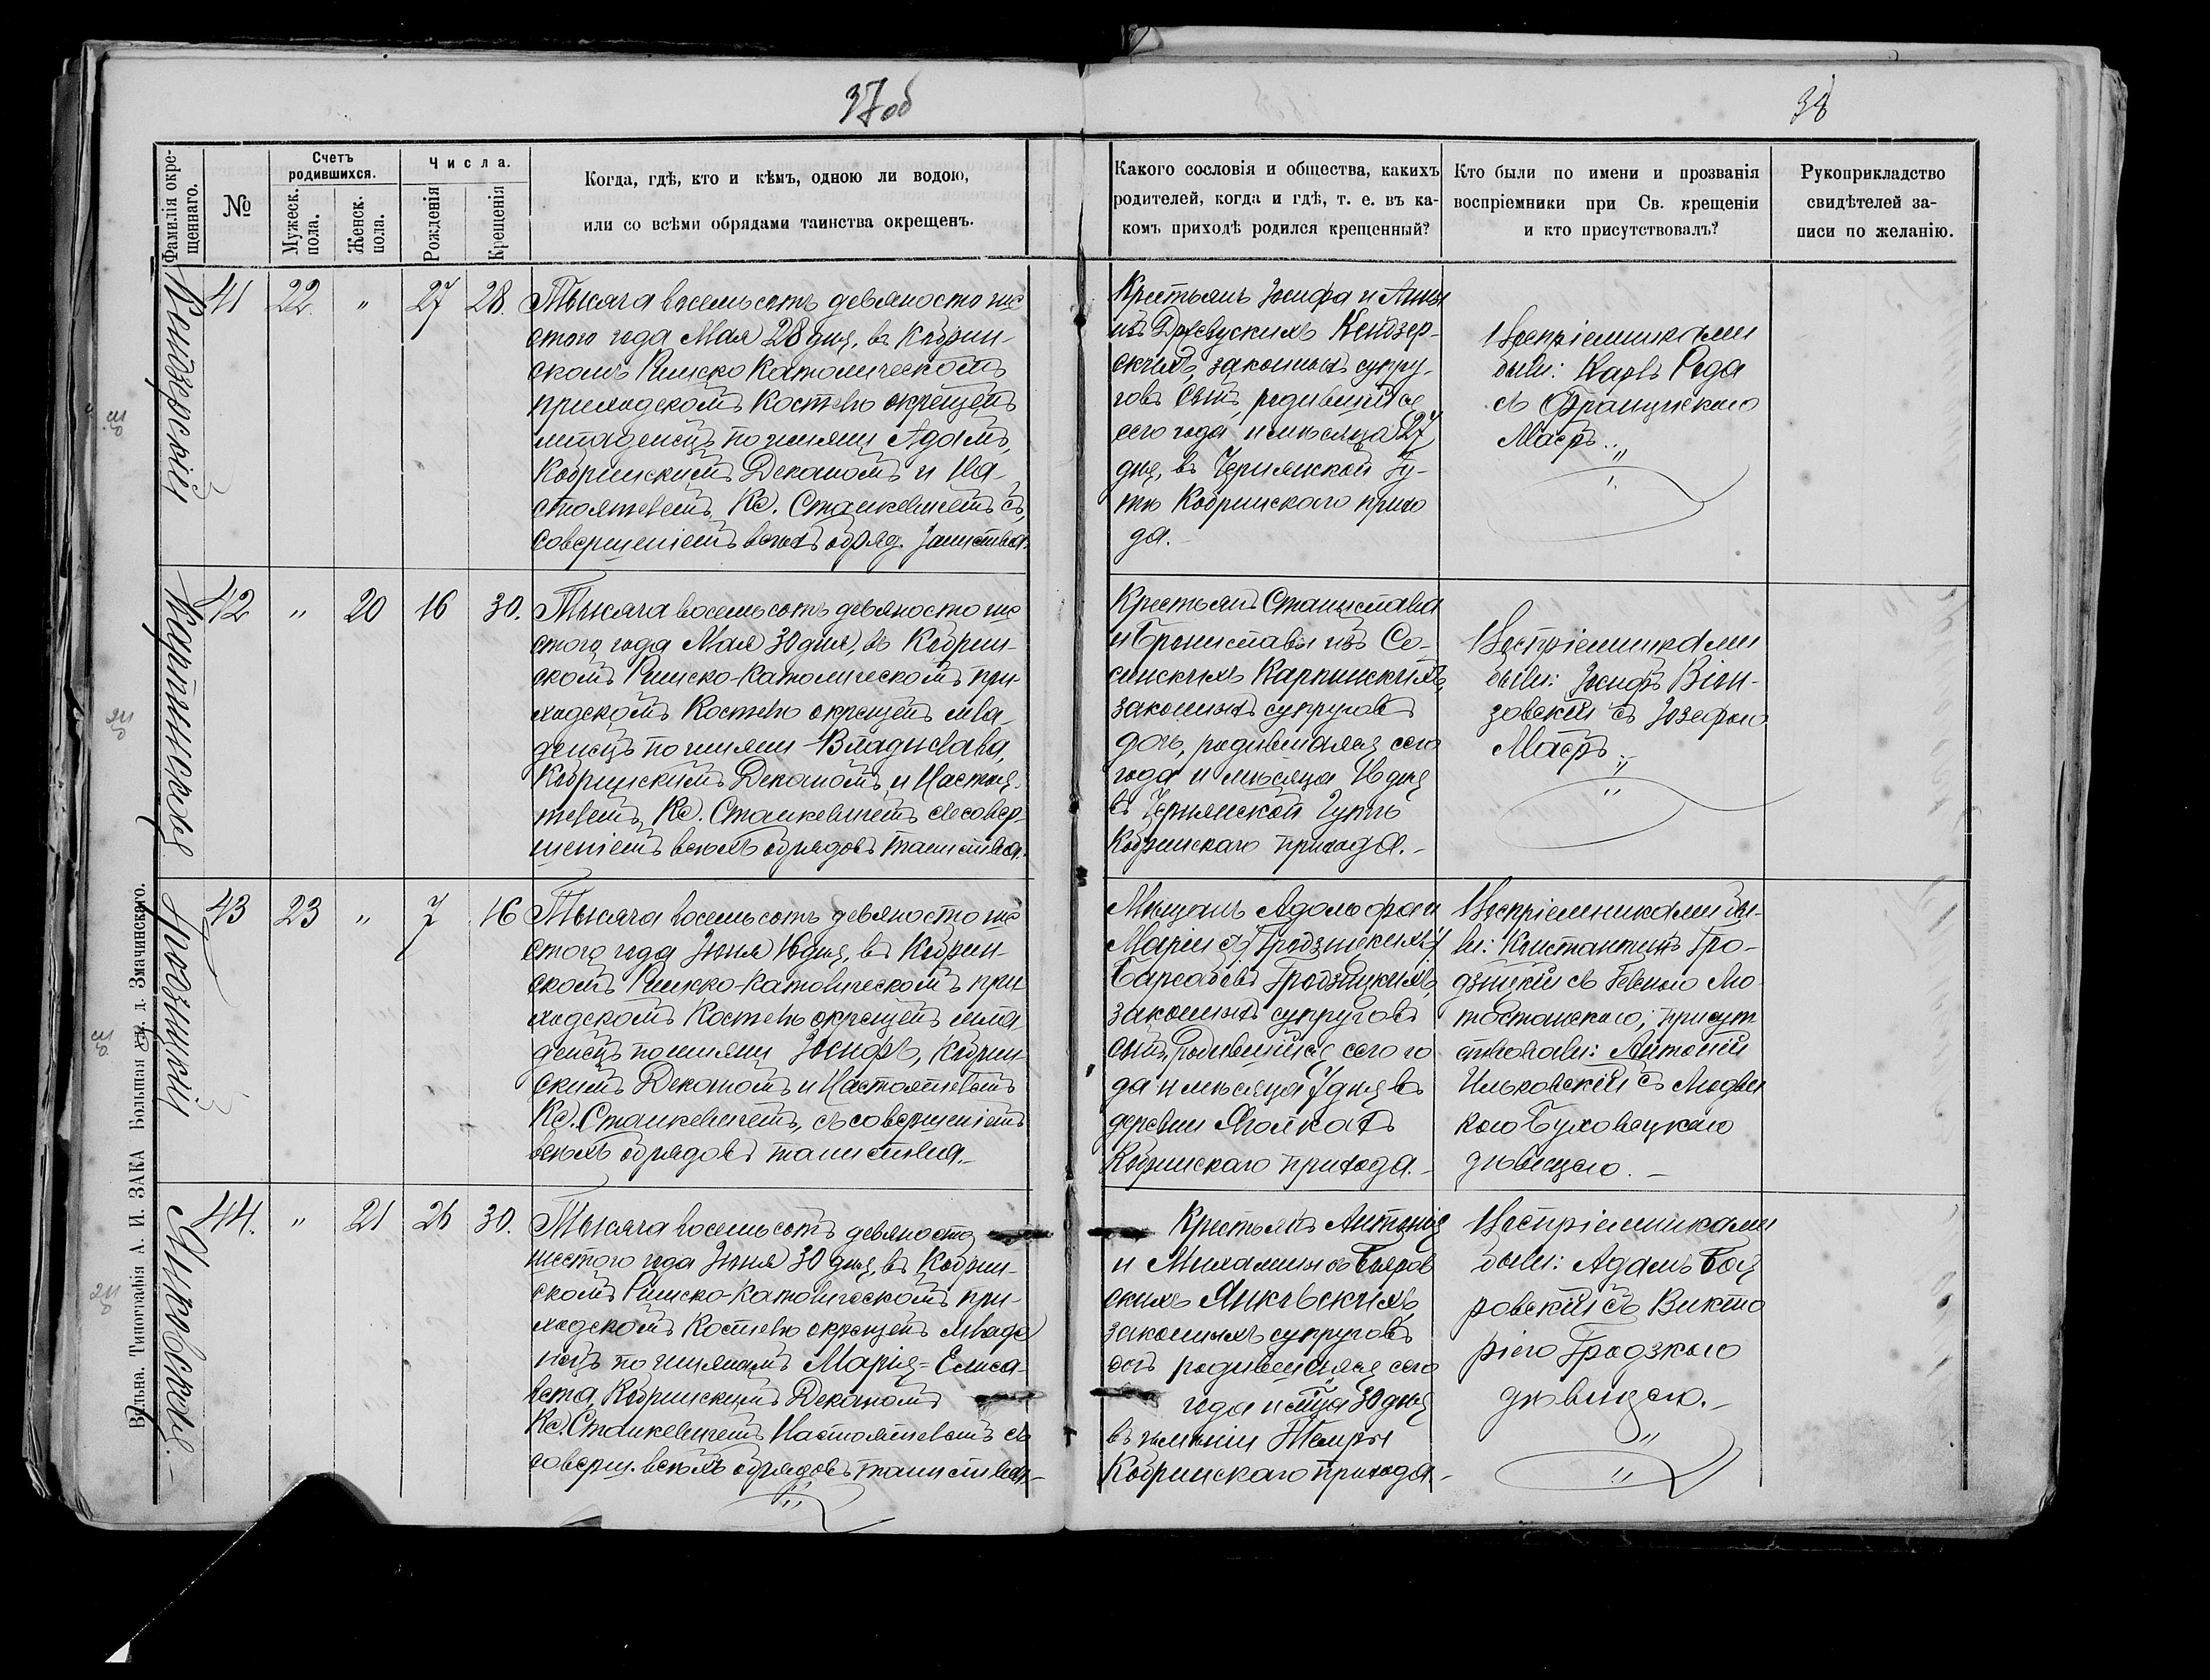 37об
38
Фамилія окре-
щеннаго.
№
Счетъ
родившихся.
Мужеск.
пола.
Женск.
пола.
Числа.
Рожденія
Крещенія
Когда, гдѣ, кто и кѣмъ, одною ли водою,
или со всѣми обрядами таинства окрещенъ.
Какого сословія и общества, какихъ
родителей, когда и гдѣ, т. е. въ ка-
комъ приходѣ родился крещенный?
Кто были по имени и прозванія
воспріемники при Св. крещеніи
и кто присутствовалъ?
Рукоприкладство
свидѣтелей за-
писи по желанію.
Кендзерскій
41
22.
"
27
28.
Тысяча восемьсотъ девяносто ше
стого года Мая 28 дня, въ Кобрин-
скомъ Римско Католическомъ
приходскомъ Костелѣ окрещенъ
младенецъ по имяни Адамъ,
Кобринскимъ Деканомъ и На-
стоятелемъ Кс. Станкевичемъ съ
совершеніемъ всѣхъ обряд. таинства.
Крестьянъ Іосифа и Анны
изъ Кендзер-
скихъ, законныхъ супру-
говъ сынъ, родившійся
сего года и мѣсяца 27
дня, въ Чернянской Гу-
тѣ Кобринскаго прихо
да.-
Воспріемниками
были: Карлъ Рода
съ Францискою
Масръ.
Карпинская
42
"
20
16
30.
Тысяча восемьсотъ девяносто ше
стого года Мая 30 дня, въ Кобрин-
скомъ Римско-Католическомъ при-
ходскомъ Костелѣ окрещенъ мла-
денецъ по имяни Владислава,
Кобринскимъ Деканомъ и Настоя-
телемъ Кс. Станкевичемъ съ совер-
шеніемъ всѣхъ обрядовъ таинства.
Крестьянъ Станислава
и Брониславы изъ Со-
синскихъ Карпинскихъ,
законныхъ супруговъ
дочь, родившаяся сего
года и мѣсяца 16 дня
въ Чернянской Гутѣ
Кобринскаго прихода.-
Воспріемниками
были: Іосифъ Вѣн-
зовскій съ Юзефою
Масръ.
Гродзицкій
43
23
"
7
16
Тысяча восемьсотъ девяносто ше
стого года Іюня 16 дня, въ Кобрин-
скомъ Римско-Католическомъ при
ходскомъ Костелѣ окрещенъ мла
денецъ по имяни Іосифъ, Кобрин-
скимъ Деканомъ и Настоятелемъ
Кс. Станкевичемъ, съ совершеніемъ
всѣхъ обрядовъ таинства.-
Мѣщанъ Адольфа и
Маріи Гродзицкихъ
Гродзицкихъ,
законныхъ супруговъ
сынъ, родившійся сего го
да и мѣсяца 7 дня въ
деревни
Кобринскаго прихода.-
Воспріемниками бы-
ли: Константинъ Гро-
дзицкій съ
присут
ствовали: Антоній
Ильковскій съ Людви
кою Буховецкою
дѣвицею.-
Янковская.-
44.
"
21
26
30.
Тысяча восемьсотъ девяносто
шестого года Іюня 30 дня, въ Кобрин-
скомъ Римско-Католическомъ при-
ходскомъ Костелѣ окрещенъ младе
нецъ по имянамъ Марія=Елиса-
вета, Кобринскимъ Деканомъ
Кс. Станкевичемъ Настоятелемъ съ
соверш. всѣхъ обрядовъ таинства.-
Крестьянъ Антонія
и Михалины съ Бояров
скихъ Янковскихъ,
законныхъ супруговъ
дочь родившаяся сего
года и мѣсяца 30 дня
въ имѣніи Темры
Кобринскаго прихода.-
Воспріемниками
были: Адамъ Боя
ровскій съ Викто
ріею Гродзкою
дѣвицею.-
Вильна. Типографія А. И. ЗАКА Большая ул. д. Змачинскаго.